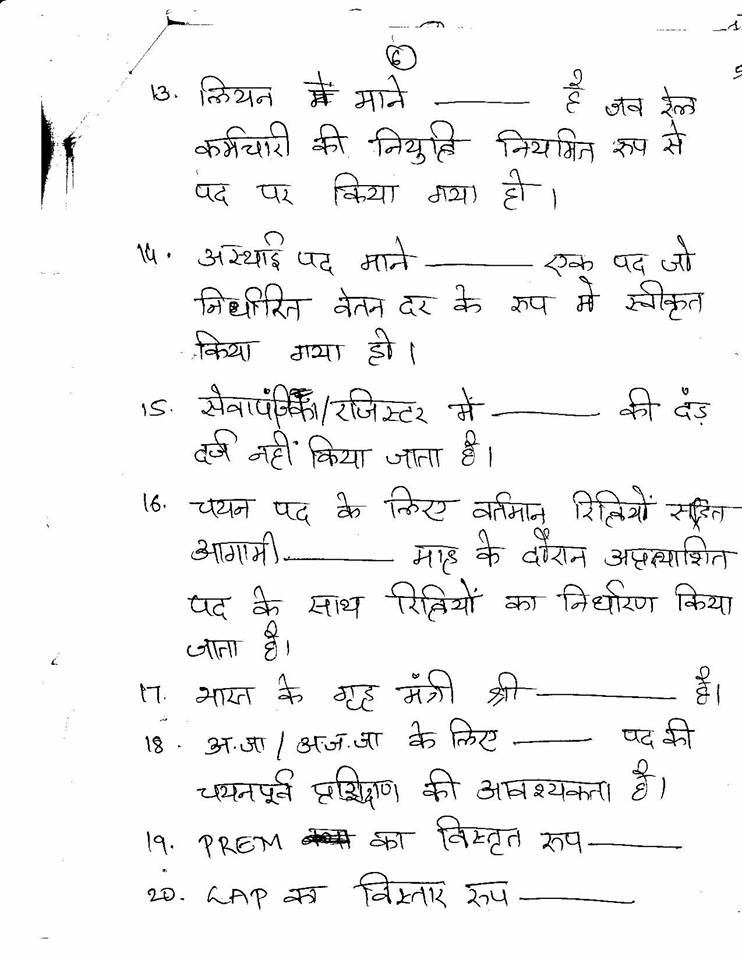 6
13. लियन माने ——— है जब रेल
कर्मचारी की नियुक्ति नियमित रूप से
पद पर किया गया हो।
14. अस्थाई पद माने ——— एक पद जो
निर्धारित वेतन दर के रूप मे स्वीकृत
किया गया हो।
15. सेवापंजिका/रजिस्टर में ——— की दंड़
दर्ज नहीं किया जाता है।
16. चयन पद के लिए वर्तमान रिक्तियों सहित
आगामी ——— माह के दौरान अप्रत्याशित
पद के साथ रिक्तियों का निर्धारण किया
जाता है।
17. भारत के गृह मंत्री श्री ——— है।
18. अ.जा/अ.ज.जा के लिए ——— पद की
चयनपूर्व प्रशिक्षण की आवश्यकता है।
19. PREM का विस्तृत रूप ———
20. LAP का विस्तार रूप ———